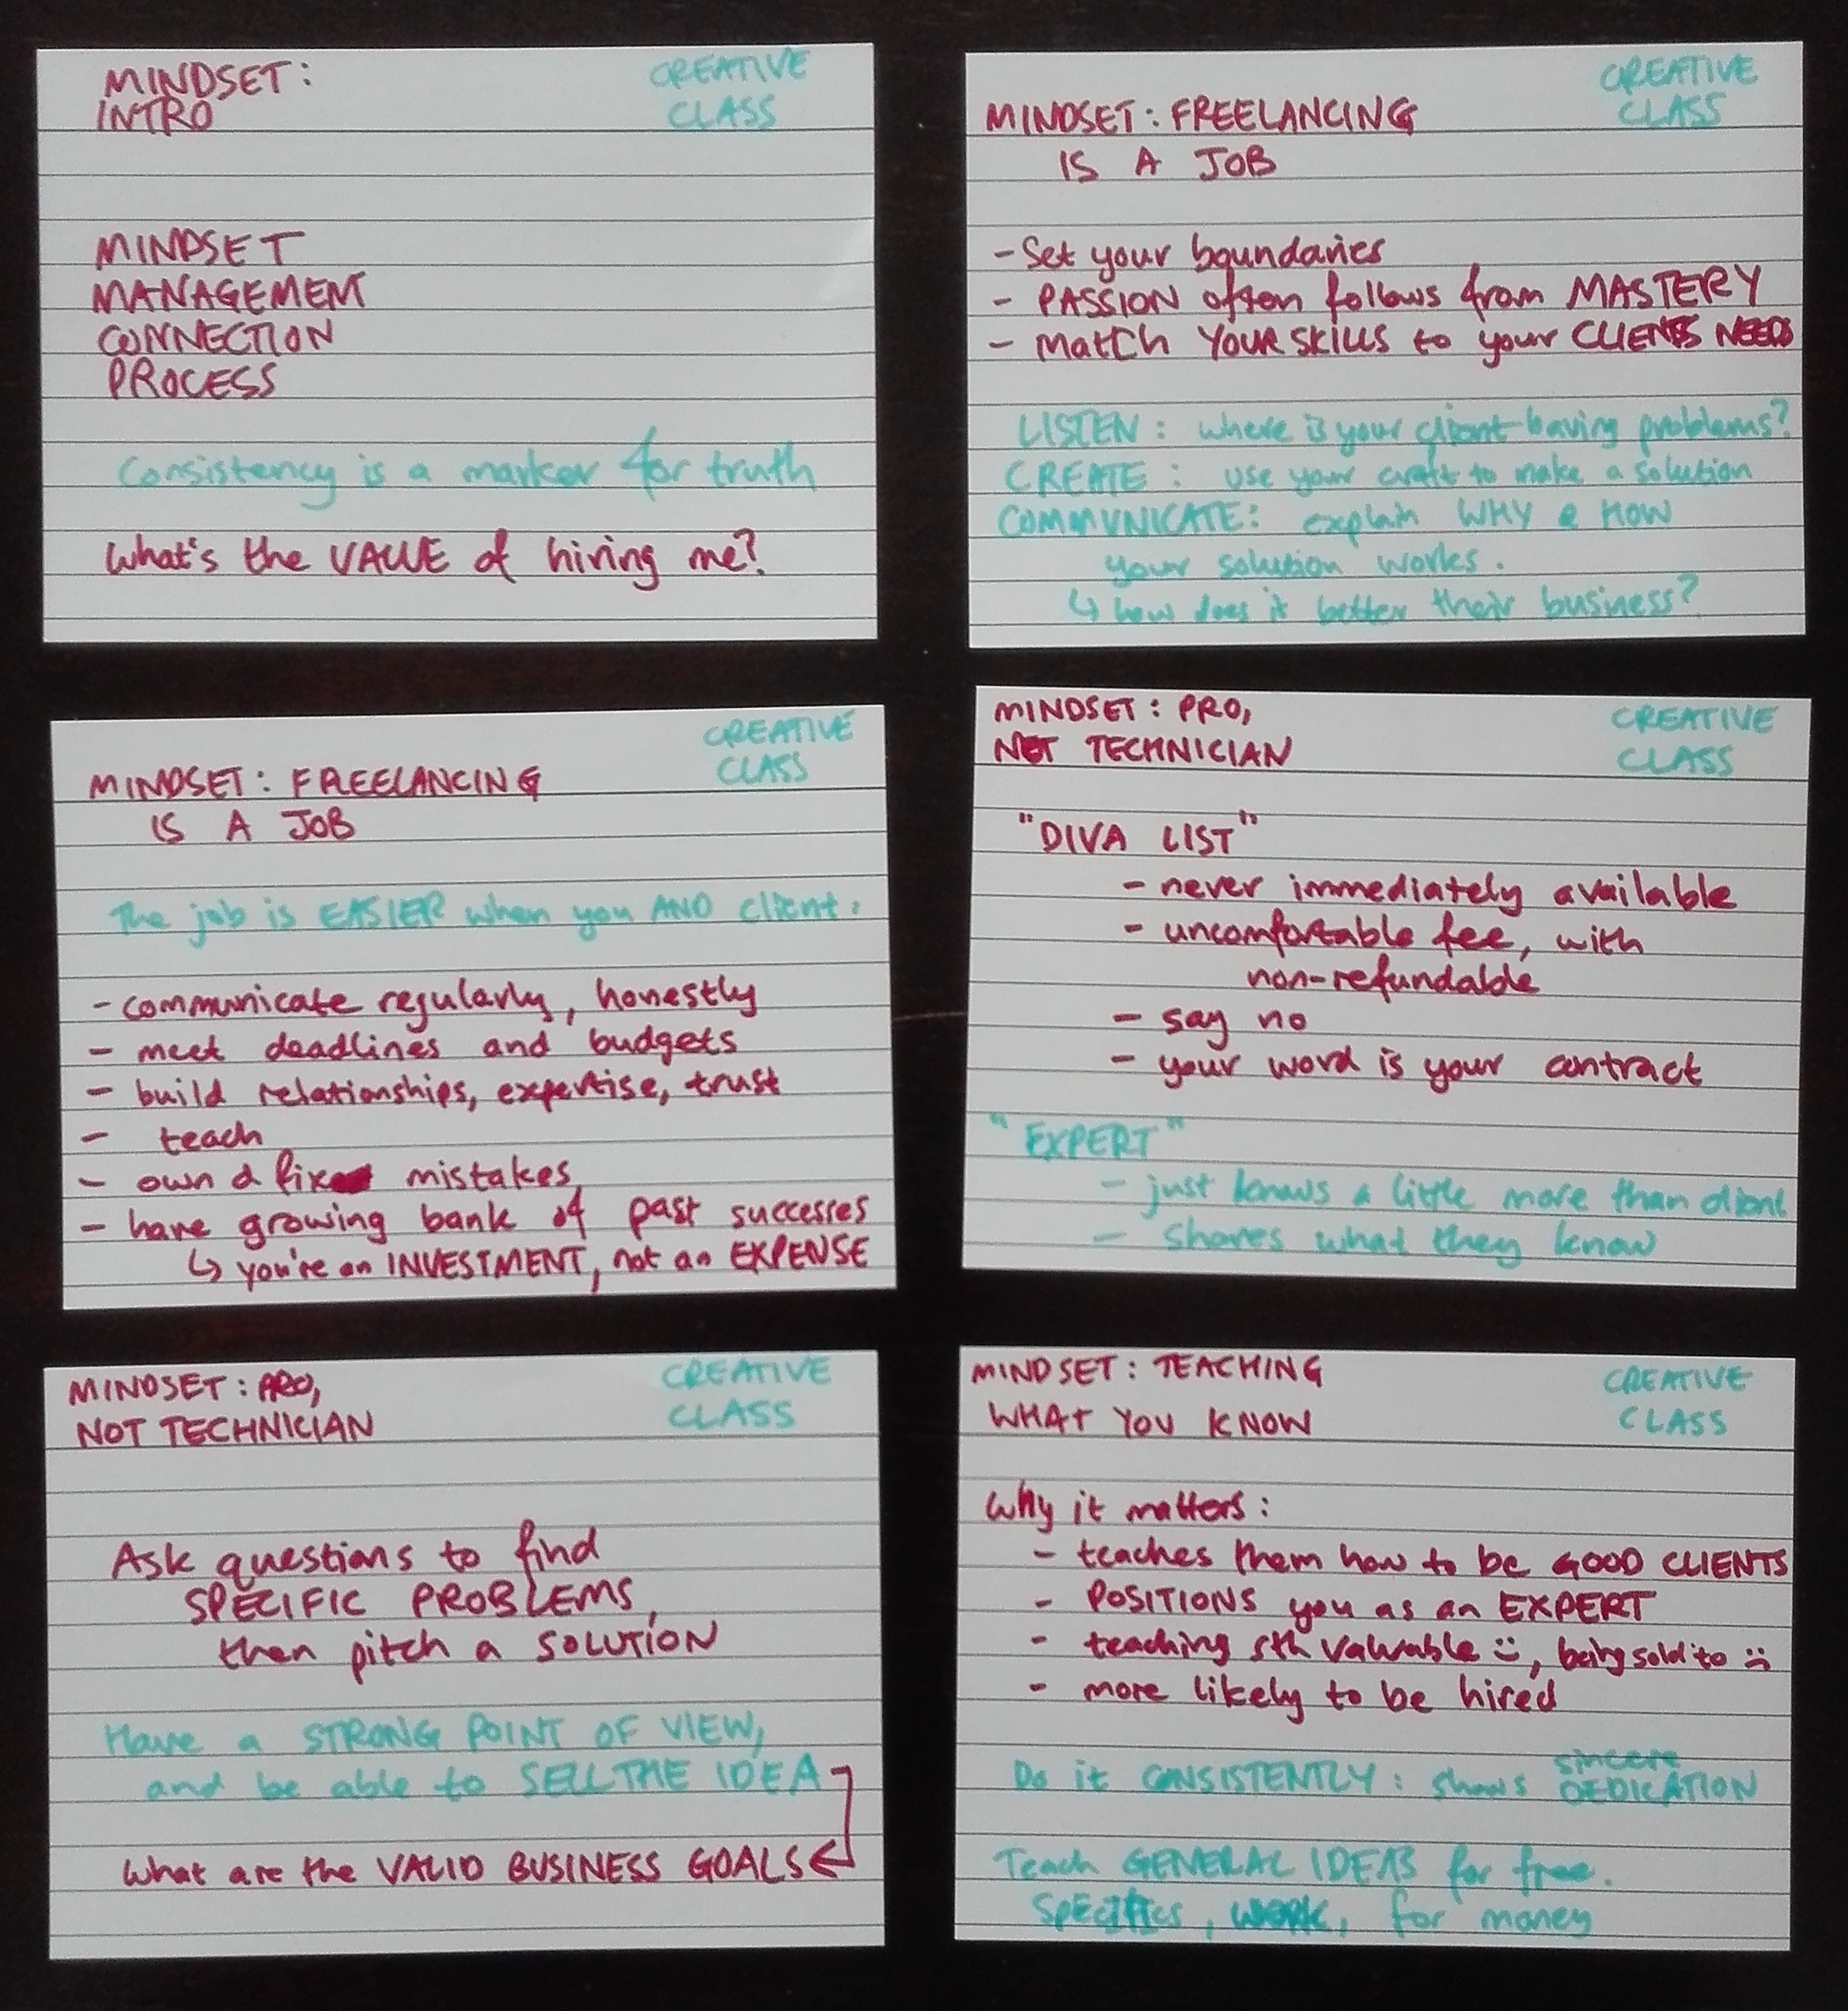 MINDSET:
INTRO
CREATIVE
CLASS
MINDSET
MANAGEMENT
CONNECTION
PROCESS
Consistency is a marker for truth
What's the VALUE of hiring me?
MINDSET: FREELANCING
IS A JOB
CREATIVE
CLASS
- Set your boundaries
- PASSION often follows from MASTERY
- Match YOUR SKILLS to your CLIENTS NEEDS
LISTEN: where is your client having problems?
CREATE: use your craft to make a solution
COMMUNICATE: explain WHY & HOW
your solution works.
↳ how does it better their business?
MINDSET: FREELANCING
IS A JOB
CREATIVE
CLASS
The job is EASIER when you AND client:
- communicate regularly, honestly
- meet deadlines and budgets
- build relationships, expertise, trust
- teach
- own & fix mistakes
- have growing bank of past successes
↳ you're an INVESTMENT, not an EXPENSE
MINDSET: PRO,
NOT TECHNICIAN
CREATIVE
CLASS
"DIVA LIST"
- never immediately available
- uncomfortable fee, with
non-refundable
- say no
- your word is your contract
"EXPERT"
- just knows a little more than client
- Shares what they know
MINDSET: PRO,
NOT TECHNICIAN
CREATIVE
CLASS
Ask questions to find
SPECIFIC PROBLEMS,
then pitch a SOLUTION
Have a STRONG POINT OF VIEW,
and be able to SELL THE IDEA
What are the VALID BUSINESS GOALS
MINDSET: TEACHING
WHAT YOU KNOW
CREATIVE
CLASS
Why it matters:
- teaches them how to be GOOD CLIENTS
- POSITIONS you as an EXPERT
- teaching sth valuable :), being sold to :(
- more likely to be hired
Do it CONSISTENTLY: shows sincere DEDICATION
Teach GENERAL IDEAS for free.
Specifics, WORK, for money